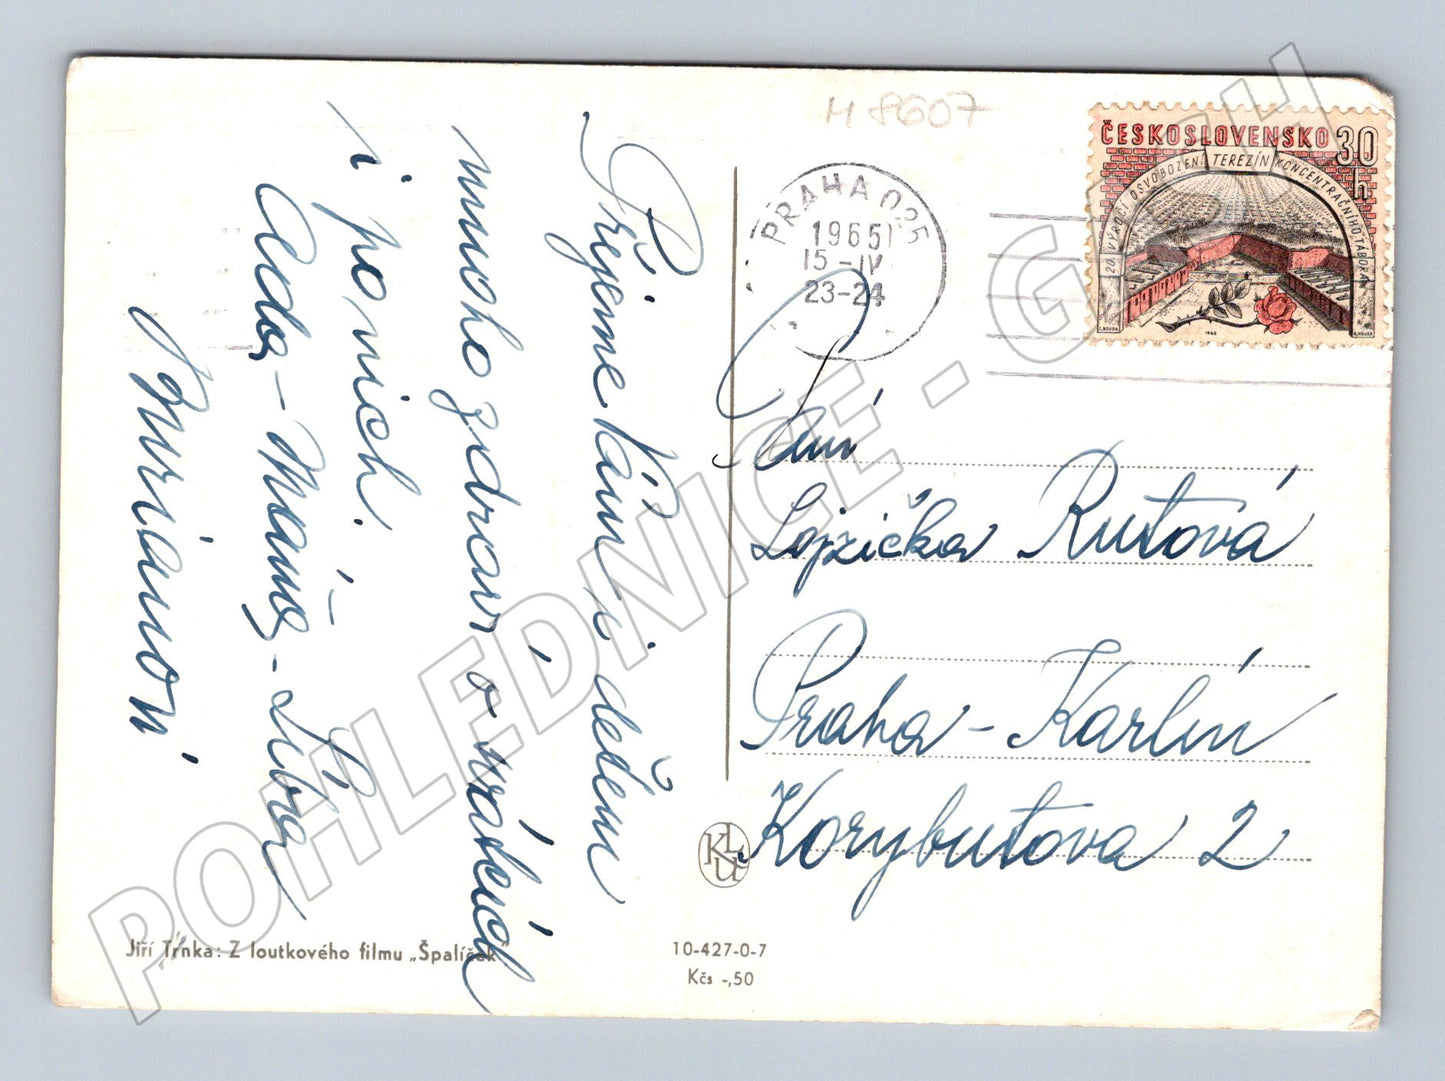 M 8607
ČESKOSLOVENSKO 30 h
20. VÝROČÍ OSVOBOZENÍ TEREZÍN KONCENTRAČNÍHO TÁBORA
1965
PRAHA 025
1965
15-IV
23-24
Přejeme Vám i dětem
mnoho zdraví o svátcích
i po nich!
Áda - Máňa - Líba
Burianovi
Paní
Lojzička Rutová
Praha - Karlín
Korybutova 2
KLU
Jiří Trnka: Z loutkového filmu „Špalíček
10-427-0-7
Kčs -,50
POHLEDNICE - G